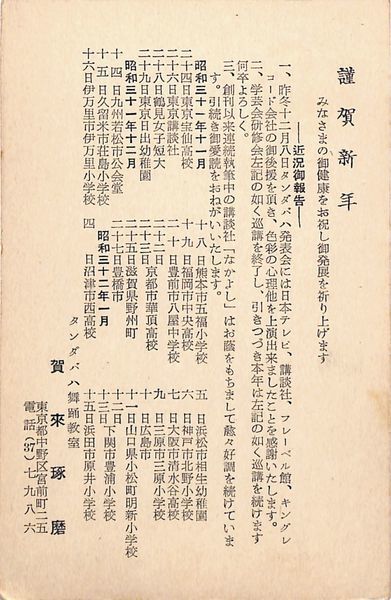 謹賀新年
みなさまの御健康をお祝し御発展を祈り上げます
――近況御報告――
一、昨冬十二月八日タンダバハ発表会には日本テレビ、講談社、フレーベル館、キングレ
コード会社の御後援を頂き、色彩の心理他を上演出来ましたことを感謝いたします。
二、学芸会研修会左記の如く巡講を終了し、引きつづき本年は左記の如く巡講を続けます
何卒よろしく。
三、創刊以来連続執筆中の講談社「なかよし」はお蔭をもちまして益々好調を続けていま
す。引続き御愛読をおねがいいたします。
昭和三十一年十一月
二十四日東京宝仙高校
二十六日東京講談社
二十八日鶴見女子短大
二十九日東京日出幼稚園
昭和三十一年十二月
十四日九州若松市公会堂
十五日久留米市荘島小学校
十六日伊万里市伊万里小学校
十八日熊本市五福小学校
十九日福岡市中央高校
二十日豊前市八屋中学校
二十三日京都市華頂高校
二十五日滋賀県野州町
二十七日豊橋市
昭和三十二年一月
四日沼津市西高校
五日浜松市相生幼稚園
六日神戸市北野小学校
七日大阪市清水谷高校
九日三原市三原小学校
十日広島市
十一日山口県小松町明新小学校
十二日
十三日下関市豊浦小学校
十五日浜田市原井小学校
タンダバハ舞踊教室
賀来琢磨
東京都中野区宮前町二五
電話(㊲)七九八六